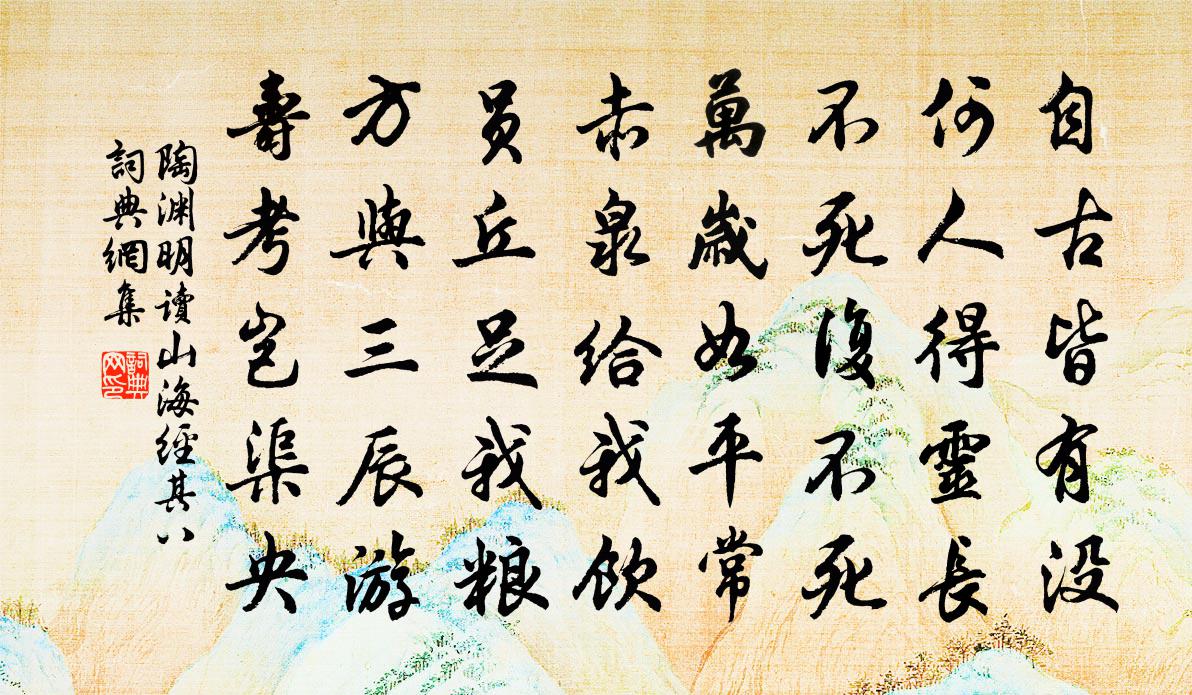 自古皆有没
何人得靈長
不死復不死
萬歲如平常
赤泉給我飲
员丘足我粮
方與三辰游
壽考豈渠央
陶渊明讀山海經其八
詞典網集
詞典
网印